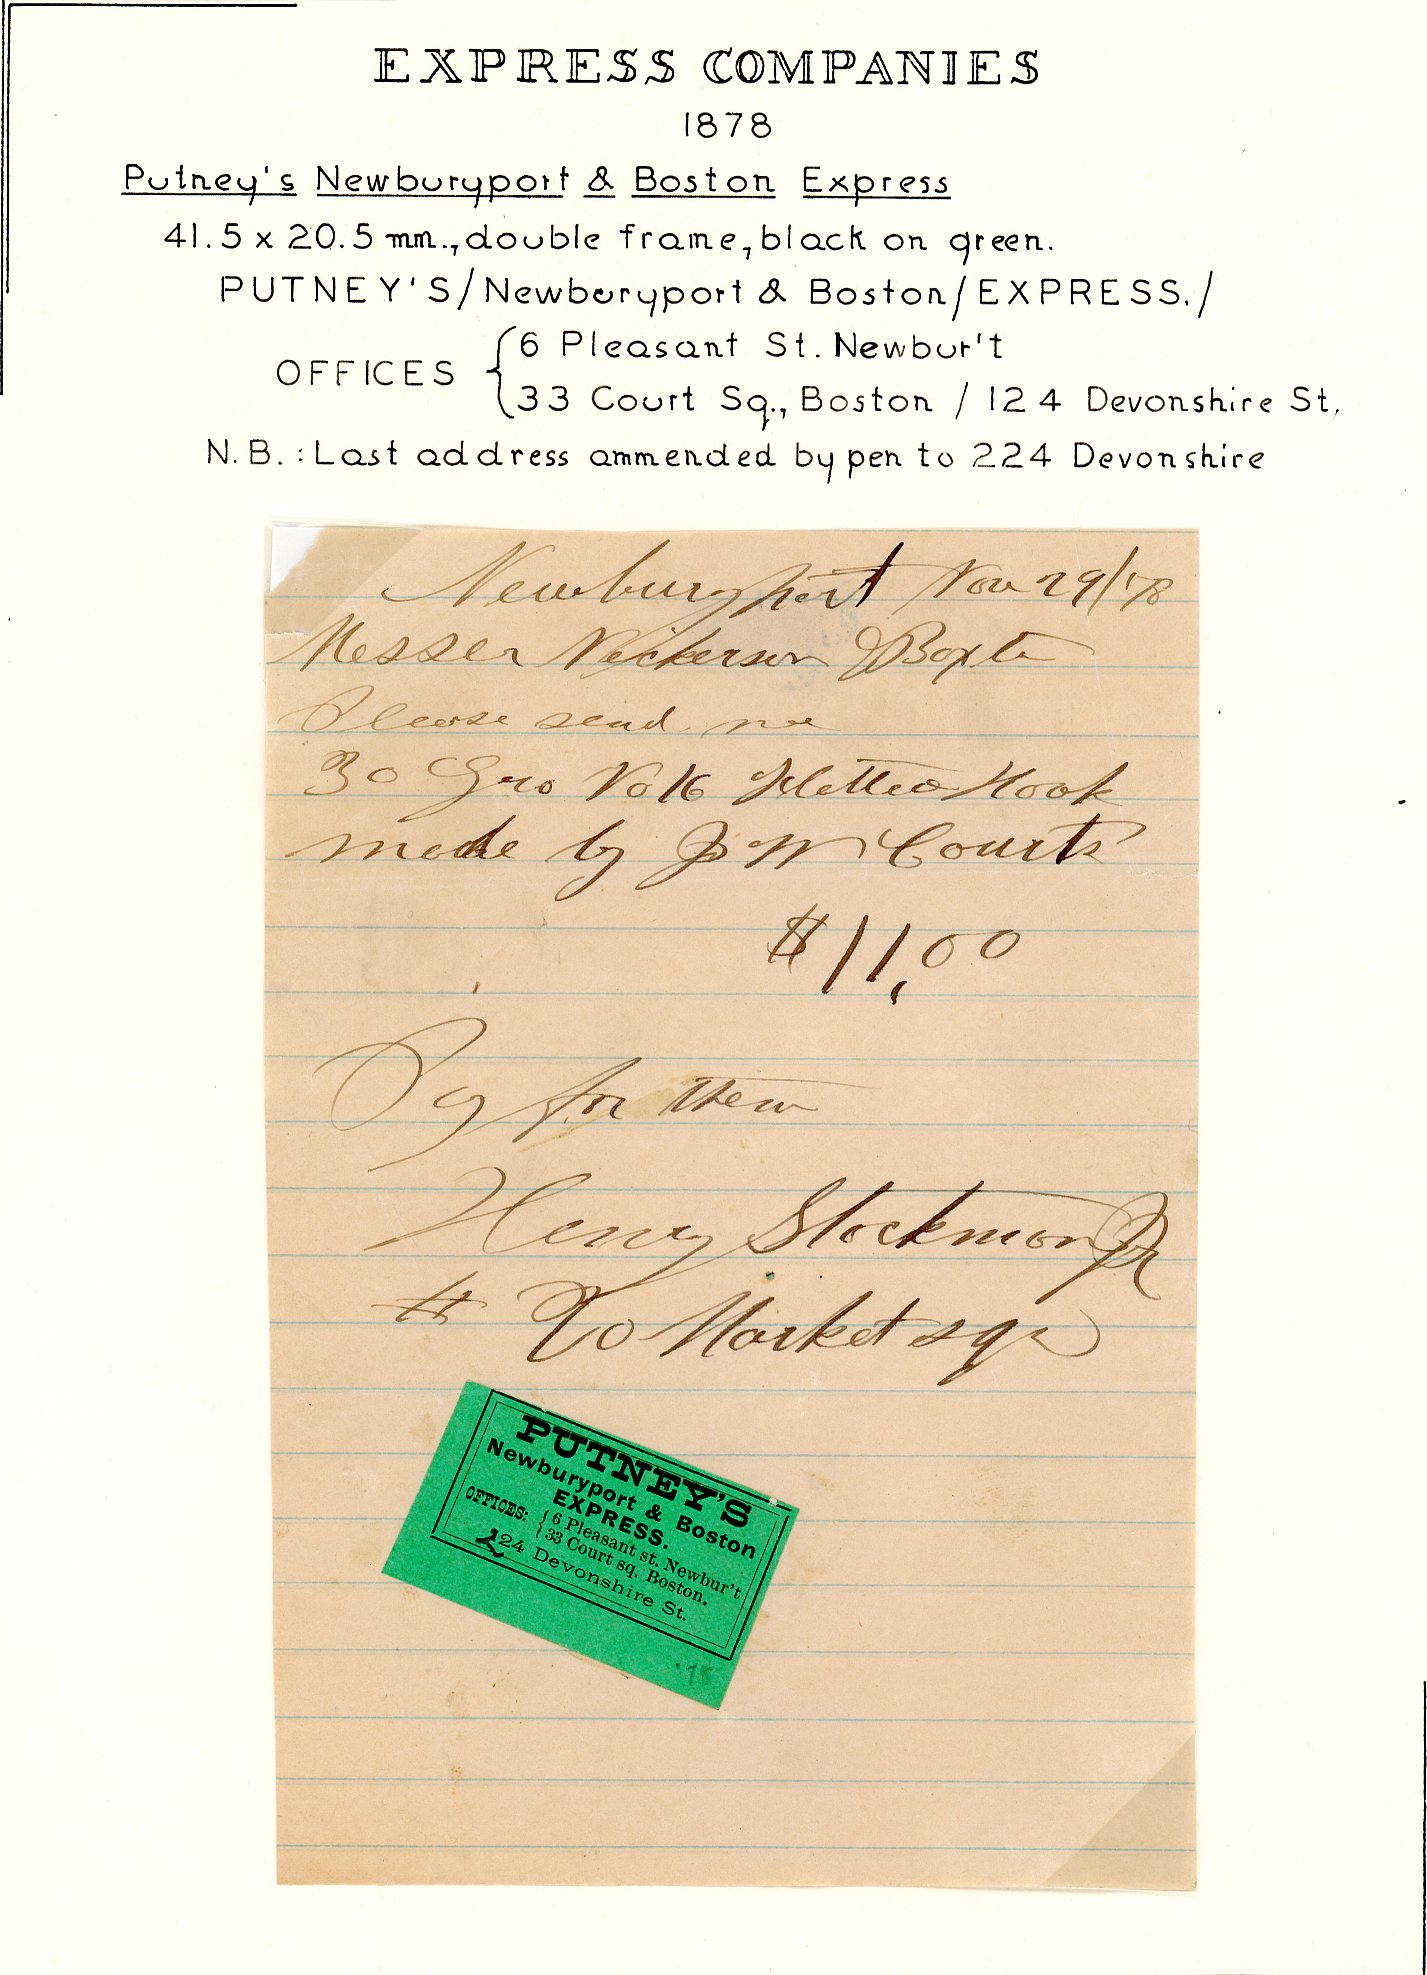 EXPRESS COMPANIES
1878
Putney's Newburyport & Boston Express
41.5 x 20.5 mm., double frame, black on green.
PUTNEY'S/Newburyport & Boston/EXPRESS./
OFFICES { 6 Pleasant St. Newbur't
33 Court Sq., Boston / 124 Devonshire St.
N.B.: Last address ammended by pen to 224 Devonshire
Newburyport Nov 29/78
Messer Nickerson & Baxter
Please send me
30 Gro No 16 Hook
made by J W Courts
$11,00
Pay for them
Henry Stockman Jr
# 20 Market sqr
PUTNEY'S
Newburyport & Boston
EXPRESS.
OFFICES: { 6 Pleasant st. Newbur't
33 Court sq. Boston.
224 Devonshire St.
'78